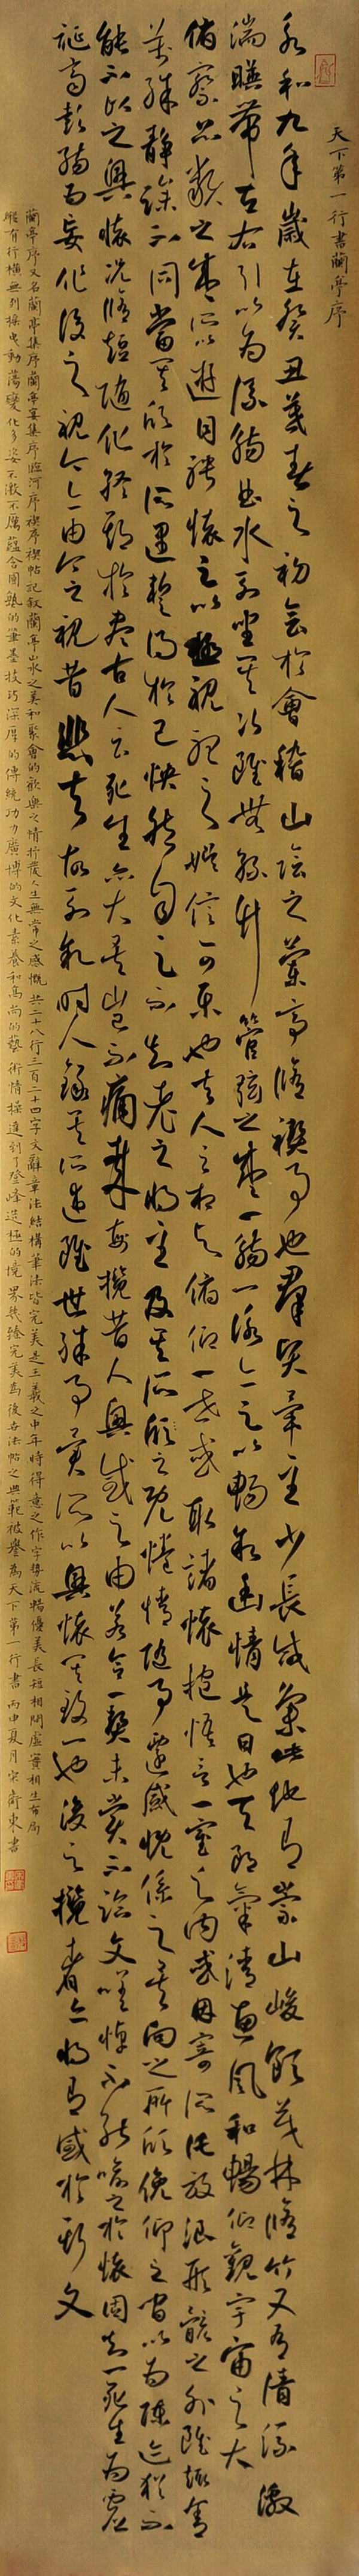 天下第一行書蘭亭序
永和九年歲在癸丑暮春之初會於會稽山陰之蘭亭脩禊事也群賢畢至少長咸集此地有崇山峻領茂林脩竹又有清流激
湍暎帶左右引以為流觴曲水列坐其次雖無絲竹管弦之盛一觴一詠亦足以暢敘幽情是日也天朗氣清惠風和暢仰觀宇宙之大
俯察品類之盛所以遊目騁懷足以極視聽之娛信可樂也夫人之相與俯仰一世或取諸懷抱悟言一室之內或因寄所託放浪形骸之外雖趣舍
萬殊靜躁不同當其欣於所遇暫得於己快然自足不知老之將至及其所之既惓情隨事遷感慨係之矣向之所欣俛仰之間以為陳迹猶不
能不以之興懷況脩短隨化終期於盡古人云死生亦大矣豈不痛哉每攬昔人興感之由若合一契未嘗不臨文嗟悼不能喻之於懷固知一死生為虛
誕齊彭殤為妄作後之視今亦由今之視昔悲夫故列敘時人錄其所述雖世殊事異所以興懷其致一也後之攬者亦將有感於斯文
蘭亭序又名蘭亭集序蘭亭宴集序臨河序禊序禊帖記敘蘭亭山水之美和聚會的歡樂之情抒發人生無常之感慨共二十八行三百二十四字文辭章法結構筆法皆完美是王羲之中年時得意之作字勢流暢優美長短相間虛實相生布局
縱有行橫無列操曳動蕩變化多姿不激不厲蘊含圓熟的筆墨技巧深厚的傳統功力廣博的文化素養和高尚的藝術情操達到了登峰造極的境界幾臻完美為後世法帖之典範被譽為天下第一行書丙申夏月宋衛東書